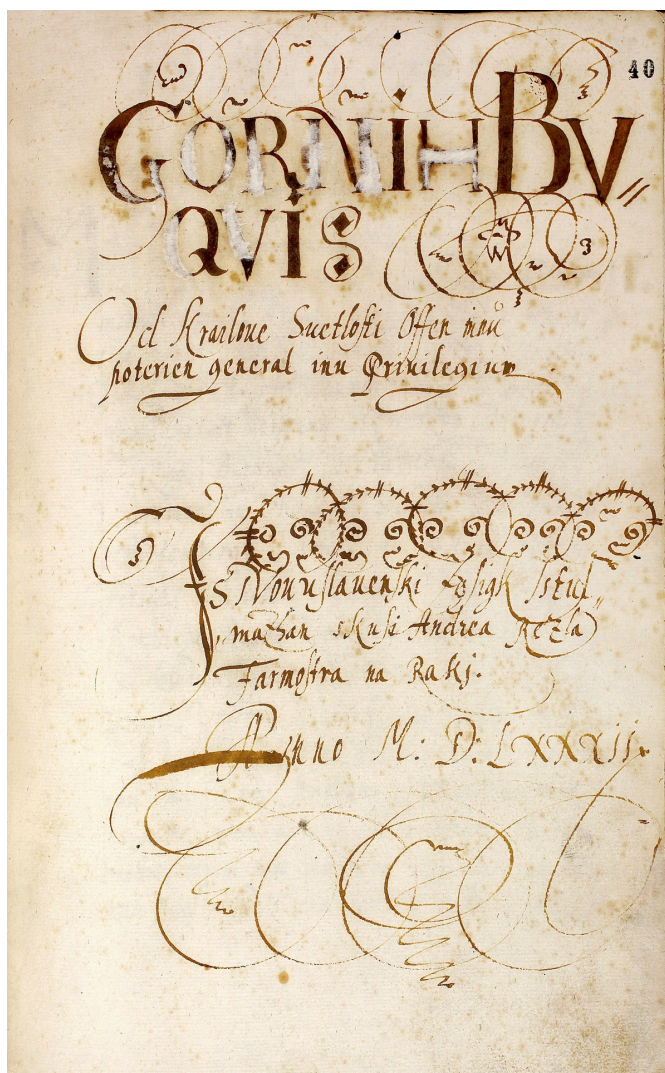 40
GORNIH BV
QVIS
Od Krailoue Suetlosti Offen innu
poterien general inu Priuilegium
Is Vonuslauenski Jesigk Istul
mazhan skusi Andrea
Farmostra na Rakj.
Anno M: D: LXXXII.